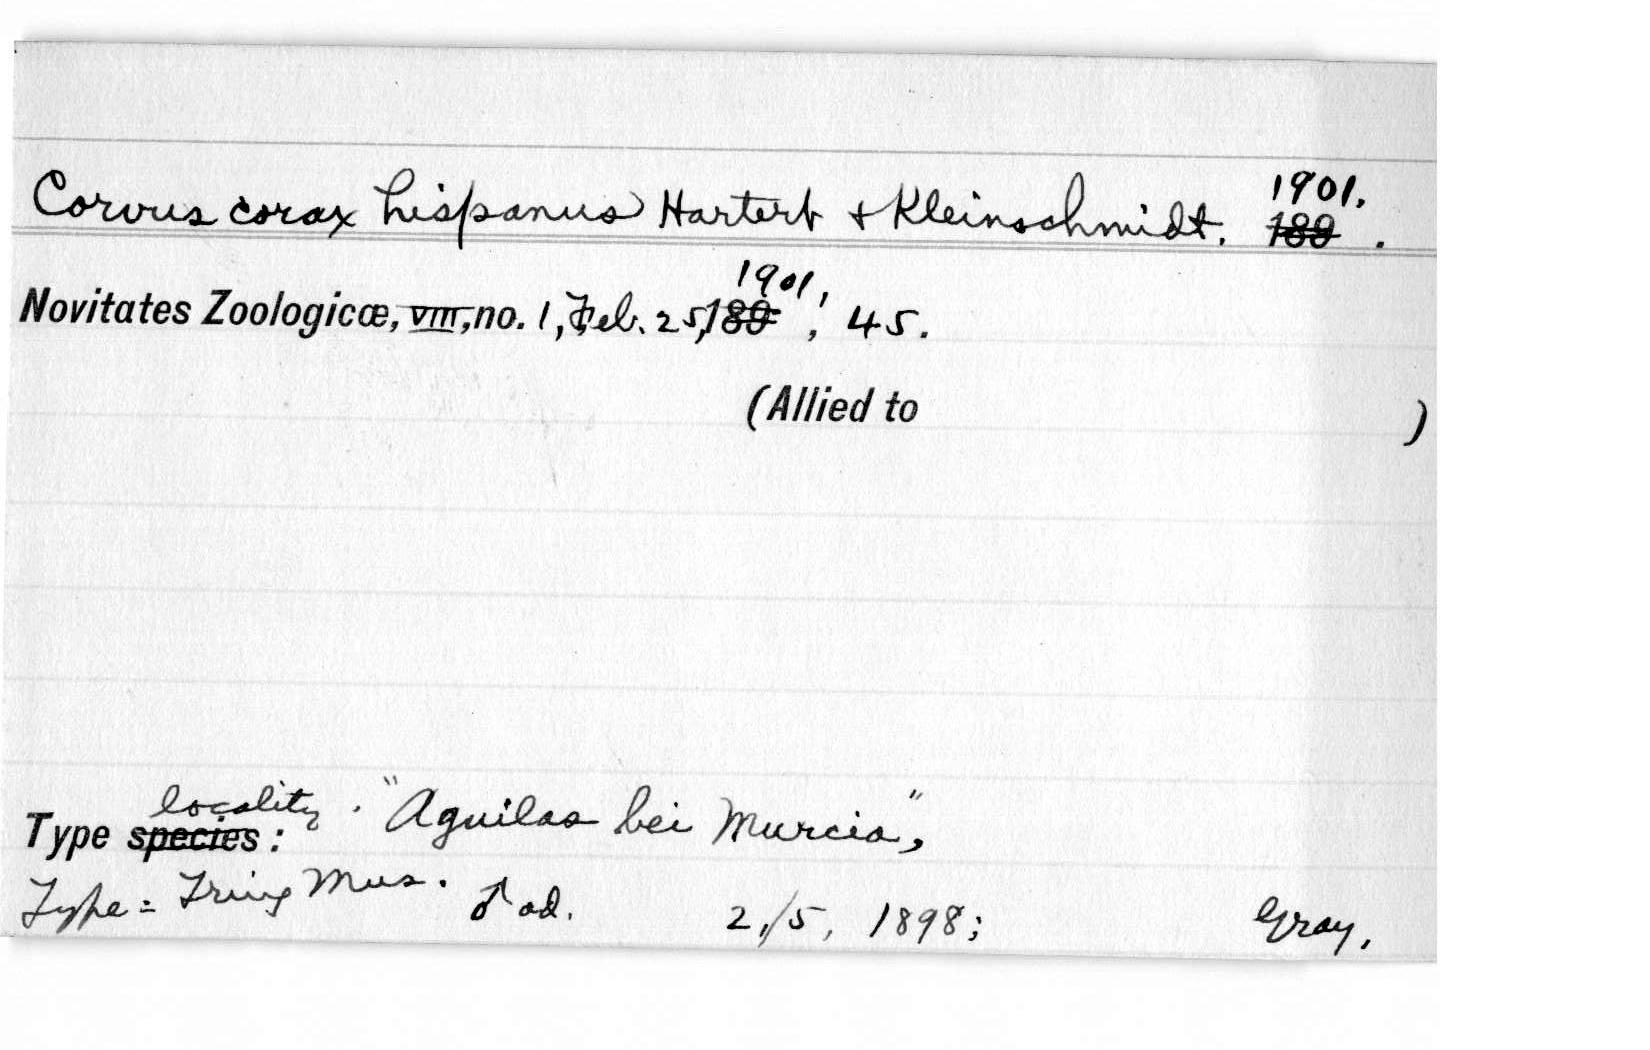 Corvus corax hispanus Hartert + Kleinschmidt. 1901. 189 .
Novitates Zoologicæ, VIII, no. 1, Feb. 25, 189 1901, ; 45.
(Allied to )
Type species locality : "Aguilas bei Murcia",
Type = Tring Mus. ♂ ad. 2/5, 1898; Gray,